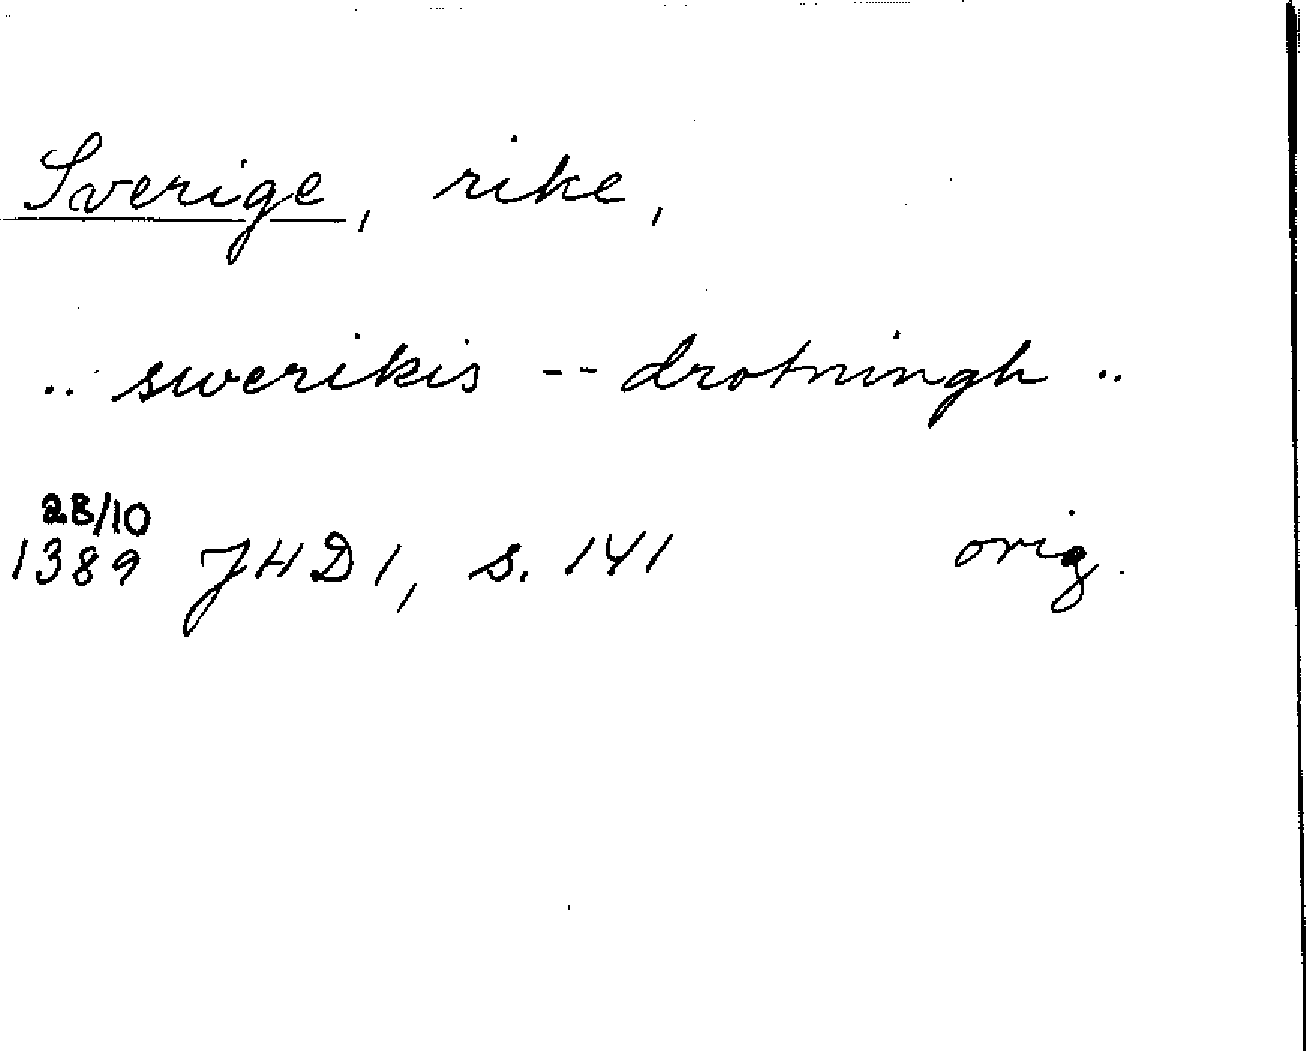 Sverige, rike,
.. swerikis -- drotningh ..
28/10
1389 JHD 1, s. 141 orig.